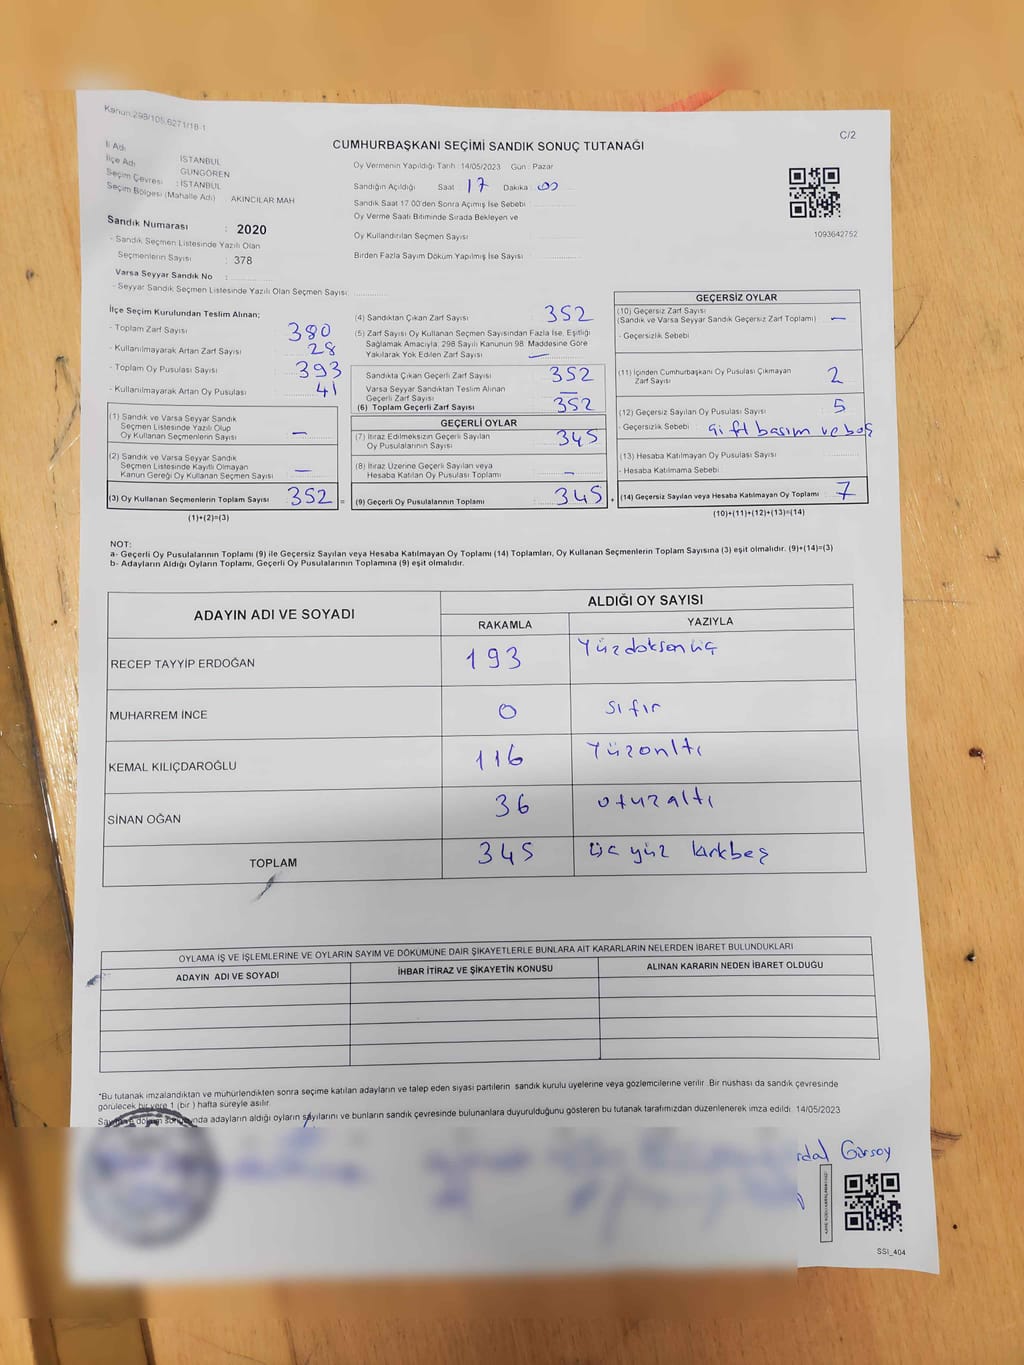 Kanun:298/105,6271/18-1
C/2
CUMHURBAŞKANI SEÇİMİ SANDIK SONUÇ TUTANAĞI
İl Adı
İSTANBUL
İlçe Adı
GÜNGÖREN
Seçim Çevresi : İSTANBUL
Seçim Bölgesi (Mahalle Adı) AKINCILAR MAH
Oy Vermenin Yapıldığı Tarih : 14/05/2023 Gün : Pazar
Sandığın Açıldığı Saat 17 Dakika : 00
Sandık Saat 17.00'den Sonra Açımış İse Sebebi
Oy Verme Saati Bitiminde Sırada Bekleyen ve
Oy Kullandırılan Seçmen Sayısı
Birden Fazla Sayım Döküm Yapılmış İse Sayısı
1093642752
Sandık Numarası : 2020
- Sandık Seçmen Listesinde Yazılı Olan
Seçmenlerin Sayısı : 378
Varsa Seyyar Sandık No :
- Seyyar Sandık Seçmen Listesinde Yazılı Olan Seçmen Sayısı:
İlçe Seçim Kurulundan Teslim Alınan;
- Toplam Zarf Sayısı 380
- Kullanılmayarak Artan Zarf Sayısı 28
- Toplam Oy Pusulası Sayısı 393
- Kullanılmayarak Artan Oy Pusulası 41
(1) Sandık ve Varsa Seyyar Sandık
Seçmen Listesinde Yazılı Olup
Oy Kullanan Seçmenlerin Sayısı —
(2) Sandık ve Varsa Seyyar Sandık
Seçmen Listesinde Kayıtlı Olmayan
Kanun Gereği Oy Kullanan Seçmen Sayısı —
(3) Oy Kullanan Seçmenlerin Toplam Sayısı 352 =
(1)+(2)=(3)
(4) Sandıktan Çıkan Zarf Sayısı 352
(5) Zarf Sayısı Oy Kullanan Seçmen Sayısından Fazla İse, Eşitliği
Sağlamak Amacıyla, 298 Sayılı Kanunun 98. Maddesine Göre
Yakılarak Yok Edilen Zarf Sayısı —
Sandıkta Çıkan Geçerli Zarf Sayısı 352
Varsa Seyyar Sandıktan Teslim Alınan
Geçerli Zarf Sayısı —
(6) Toplam Geçerli Zarf Sayısı 352
GEÇERLİ OYLAR
(7) İtiraz Edilmeksizin Geçerli Sayılan
Oy Pusulalarının Sayısı 345
(8) İtiraz Üzerine Geçerli Sayılan veya
Hesaba Katılan Oy Pusulası Toplamı —
(9) Geçerli Oy Pusulalarının Toplamı 345 +
GEÇERSİZ OYLAR
(10) Geçersiz Zarf Sayısı
(Sandık ve Varsa Seyyar Sandık Geçersiz Zarf Toplamı) —
- Geçersizlik Sebebi
(11) İçinden Cumhurbaşkanı Oy Pusulası Çıkmayan
Zarf Sayısı 2
(12) Geçersiz Sayılan Oy Pusulası Sayısı 5
- Geçersizlik Sebebi : çift basım ve boş
(13) Hesaba Katılmayan Oy Pusulası Sayısı
- Hesaba Katılmama Sebebi
(14) Geçersiz Sayılan veya Hesaba Katılmayan Oy Toplamı 7
(10)+(11)+(12)+(13)=(14)
NOT:
a- Geçerli Oy Pusulalarının Toplamı (9) ile Geçersiz Sayılan veya Hesaba Katılmayan Oy Toplamı (14) Toplamları, Oy Kullanan Seçmenlerin Toplam Sayısına (3) eşit olmalıdır. (9)+(14)=(3)
b- Adayların Aldığı Oyların Toplamı, Geçerli Oy Pusulalarının Toplamına (9) eşit olmalıdır.
ADAYIN ADI VE SOYADI
ALDIĞI OY SAYISI
RAKAMLA YAZIYLA
RECEP TAYYİP ERDOĞAN 193 Yüzdoksanüç
MUHARREM İNCE 0 sıfır
KEMAL KILIÇDAROĞLU 116 Yüzonltı
SİNAN OĞAN 36 otuzaltı
TOPLAM 345 üç yüz kırkbeş
OYLAMA İŞ VE İŞLEMLERİNE VE OYLARIN SAYIM VE DÖKÜMÜNE DAİR ŞİKAYETLERLE BUNLARA AİT KARARLARIN NELERDEN İBARET BULUNDUKLARI
ADAYIN ADI VE SOYADI İHBAR İTİRAZ VE ŞİKAYETİN KONUSU ALINAN KARARIN NEDEN İBARET OLDUĞU
*Bu tutanak imzalandıktan ve mühürlendikten sonra seçime katılan adayların ve talep eden siyasi partilerin sandık kurulu üyelerine veya gözlemcilerine verilir. Bir nüshası da sandık çevresinde
görülecek bir yere 1 (bir ) hafta süreyle asılır.
adayların aldığı oyların sayılarını ve bunların sandık çevresinde bulunanlara duyurulduğunu gösteren bu tutanak tarafımızdan düzenlenerek imza edildi. 14/05/2023
rdal Gürsoy
SSI_404